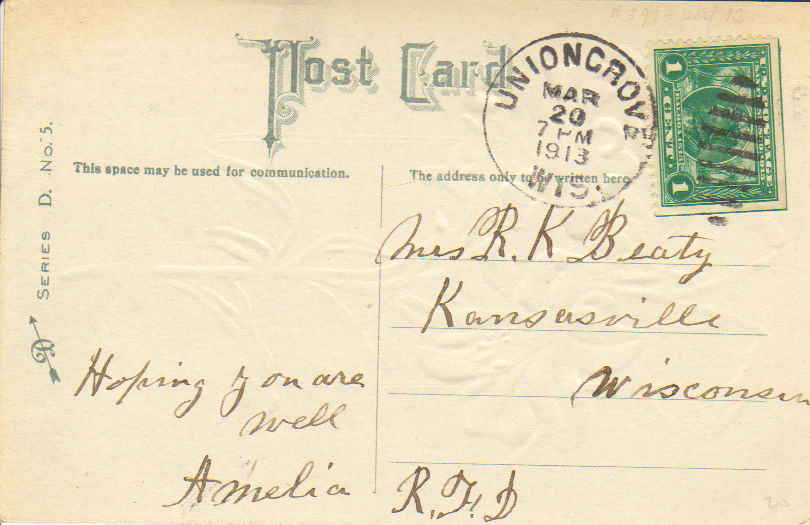 Post Card
UNION GROVE
MAR
20
7 PM
1913
WIS.
1 CENT 1
This space may be used for communication.
The address only to be written here
SERIES D. No. 5.
Mrs R. K Beaty
Kansasville
Wisconsin
R.F.D
Hoping you are
well
Amelia